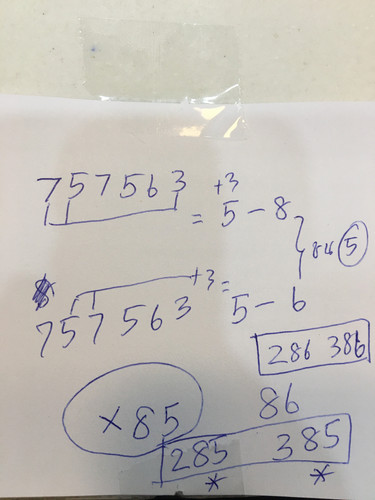 757563 +3
= 5-8
84 5
+3=
757563 5-6
286 386
86
×85
285 385
* *